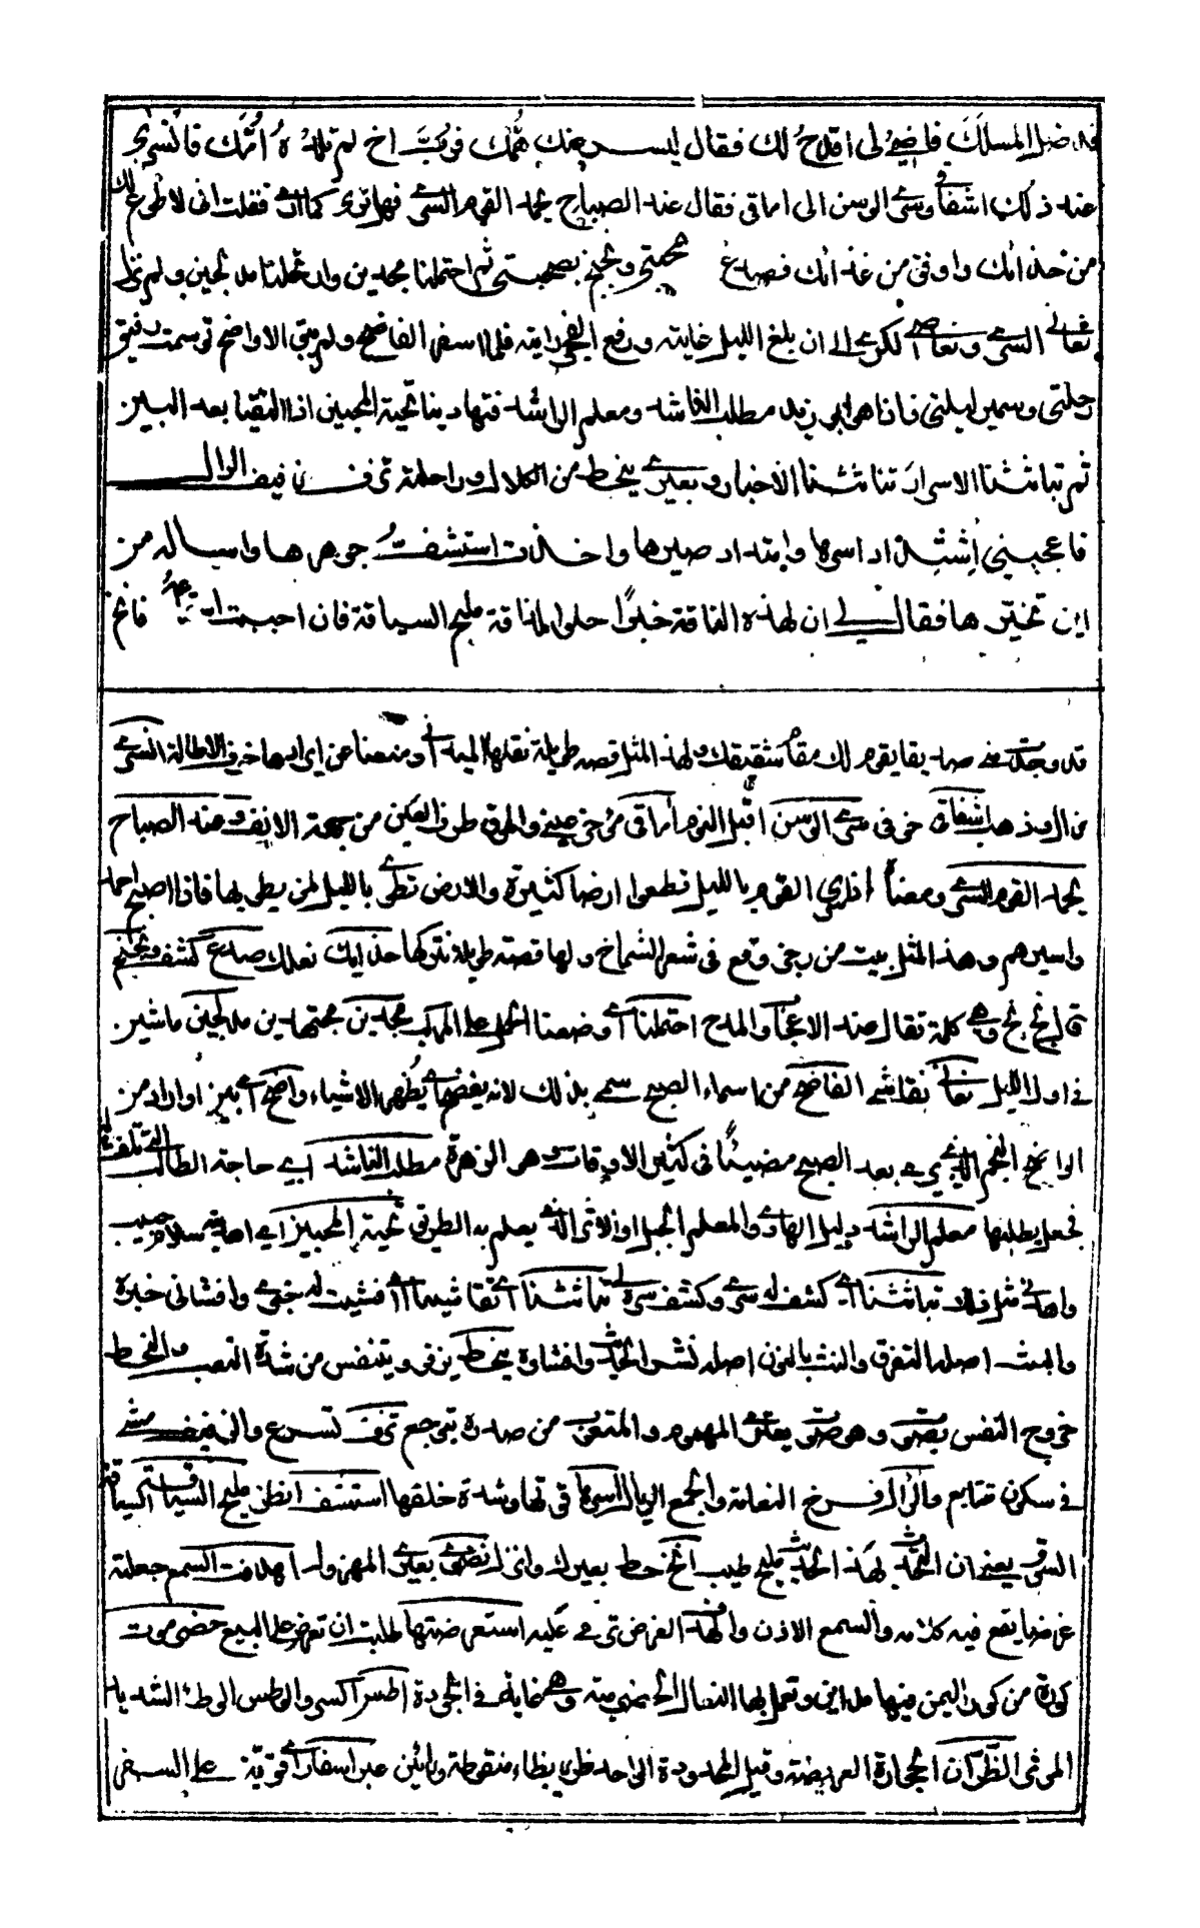 قد ضل المسلك فاضئ لي اقدح لك فقال ليسر عنك همك فرب اخ لم تلده امك فانسرى
عند ذلك اشفاقي وسرى الوسن الى اماقي فقال عند الصباح يحمد القوم السرى فهل ترى كما ارى فقلت اني لاطوع لك
من حذائك واوفق من غذائك فصدع بمحبتي وبخبخ بصحبتي ثم احتملنا مجدين وارتحلنا مدلجين ولم نزل
نعاني السرى ونعاصي الكرى الى ان بلغ الليل غايته ورفع الفجر رايته فلما اسفر الفاضح ولم يبق الا واضح توسمت رفيق
رحلتي وسمير ليلتي فاذا هو ابو زيد مطلب الناشد ومعلم الراشد فتهادينا تحية المحبين اذا التقيا بعد البين
ثم تباثثنا الاسرار وتناثثنا الاخبار وبعيري ينحط من الكلال وراحلته تزف زفيف الرال
فاعجبني اشتداد اسرها وامتداد صبرها واخذت استشف جوهرها واساله من
اين تخيرها فقال لي ان لهذه الناقة خبرا حلو المذاقة مليح السياقة فان احببت استماعه فانخ
قد وجدت صديقا يقوم لك مقام شقيقك ولهذا المثل قصة طويلة نقلها الميداني ومنعنا عن ايرادها خوف الاطالة انسرى
زال وذهب اشفاقي خوفي سرى الوسن اقبل النوم اماقي مؤخر عيني والموق طرف العين من جهة الانف وعند الصباح
يحمد القوم السرى ومعناه اذا سرى القوم بالليل قطعوا ارضا كثيرة والارض تطوى بالليل لمن يطويها فاذا اصبح احمدوا
واسيرهم وهذا المثل بيت من رجز وقع في شعر الشماخ ولها قصة طويلة نتركها حذائك نعلك صدع كشف وبخبخ
قال بخ بخ وهي كلمة تقال عند الاعجاب والمدح احتملنا اي وضعنا الحمل على المركب مجدين مجتهدين مدلجين ماشين
في اول الليل نعاني نقاسي الفاضح من اسماء الصبح سمي بذلك لانه يفضح اي يظهر الاشياء واضح اي بين او اراد من
الواضح النجم الذي يرى بعد الصبح مضيئا في كثير الاوقات وهو الزهرة مطلب الناشد اي حاجة الطالب التي تلفت له
فجعل يطلبها معلم الراشد دليل الهادي والمعلم الجبل او الاثر الذي يعلم به الطريق تحية المحبين اي اهديته سلام حبيب
واهداني مثل ذلك تباثثنا اي كشف له سري وكشف سره لي تناثثنا اي تفاشينا اي افشيت له خبري وافشاني خبره
والبث اصله التفرق والنث بالنون اصله نشر الحديث وافشاؤه ينحط يزفر ويتنفس من شدة التعب والنحط
خروج النفس بصوت وهو صوت يعتري المهموم والمتعوب من صدره بتوجع تزف تسرع والزفيف مشي
في سكون متتابع والرال فرخ النعامة والجمع الريال اسرها قوتها وشدة خلقها استشف انظر مليح السياقة السياقة
السوق يعني ان الحديث لهذا الحديث مليح طيب انخ حط بعيرك وانزل نضوي بعيري المهزول اهدفت السمع جعلته
غرضا يقع فيه كلامه والسمع الاذن والهدف الغرض ترمي عليه استعرضتها طلبت ان تعرض علي للبيع حضرموت
كورة من كور اليمن فيها مدائن وتعمل بها النعال الحضرمية وهي نهاية في الجودة اطس اكسر والوطس الوطء الشديد
المرثى الظران الحجارة العريضة وقيل المحدودة الواحد ظرر بظاء منقوطة ورائين عبر اسفار اي قوية على السفر